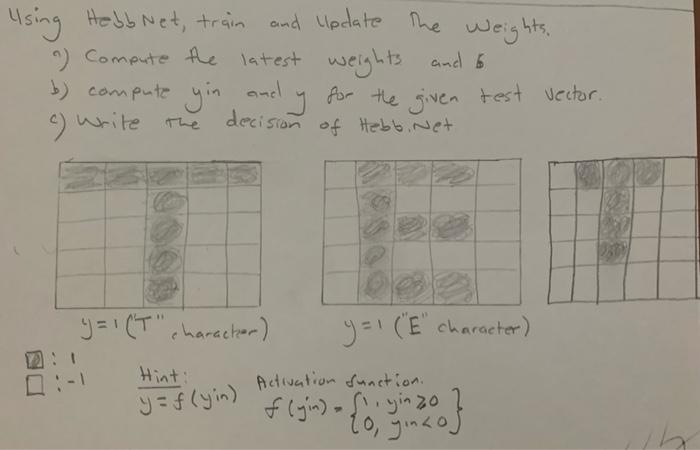 Using Hebb Net, train and Update The Weights.
a) Compute the latest weights and b
b) compute yin and y for the given test vector.
c) Write the decision of Hebb.Net
y=1 ("T" character) y=1 ("E" character)
: 1
: -1
Hint: Activation function.
y = f(yin) f(yin) = {1, yin ≥ 0
0, yin < 0}